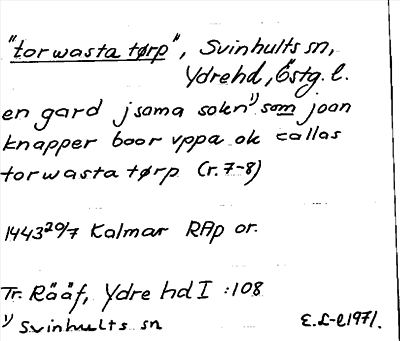 "torwasta tørp", Svinhults sn,
Ydrehd, Östg. l.
en gard j sama sokn¹⁾ som joan
knapper boor vppa ok callas
torwasta tørp (r. 7-8)
1443 20/7 Kalmar RAp or.
Tr. Rääf, Ydre hd I :108
¹⁾ Svinhults sn
E. L-e 1971.